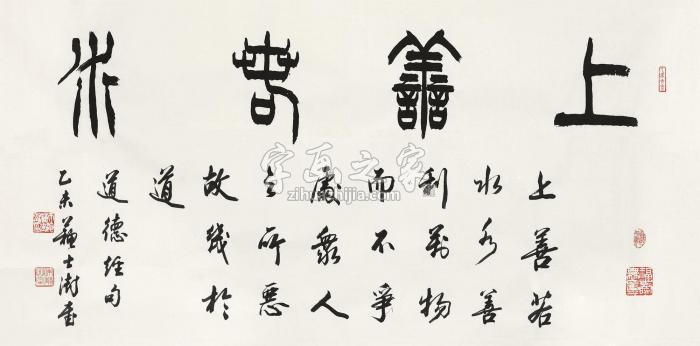 上善若水
上善若
水水善
利萬物
而不爭
處眾人
之所惡
故幾於
道
道德經句
乙未蘇士澍書
字画之家
zihuazhijia.com